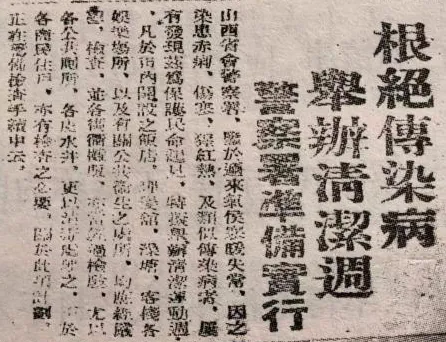 根絕傳染病
舉辦清潔週
警察署準備實行
山西省會警察署、鑒於邇來氣候寒暖失常、因之
染患赤痢、傷寒、猩紅熱、及類似傳染病者、屢
有發現茲為保護民命起見、特擬舉辦清潔運動週
、凡於市內開設之飯店、 館、澡塘、客棧各
娛樂場所、以及有關公共衛生之場所、均應 嚴
、檢查、並各街 、亦 檢 、尤以
各公共廁所、各處水井、更以清 之、 於
各商民住戶、亦有檢查之必要、關於此項計劃、
正在籌備 手續中云、